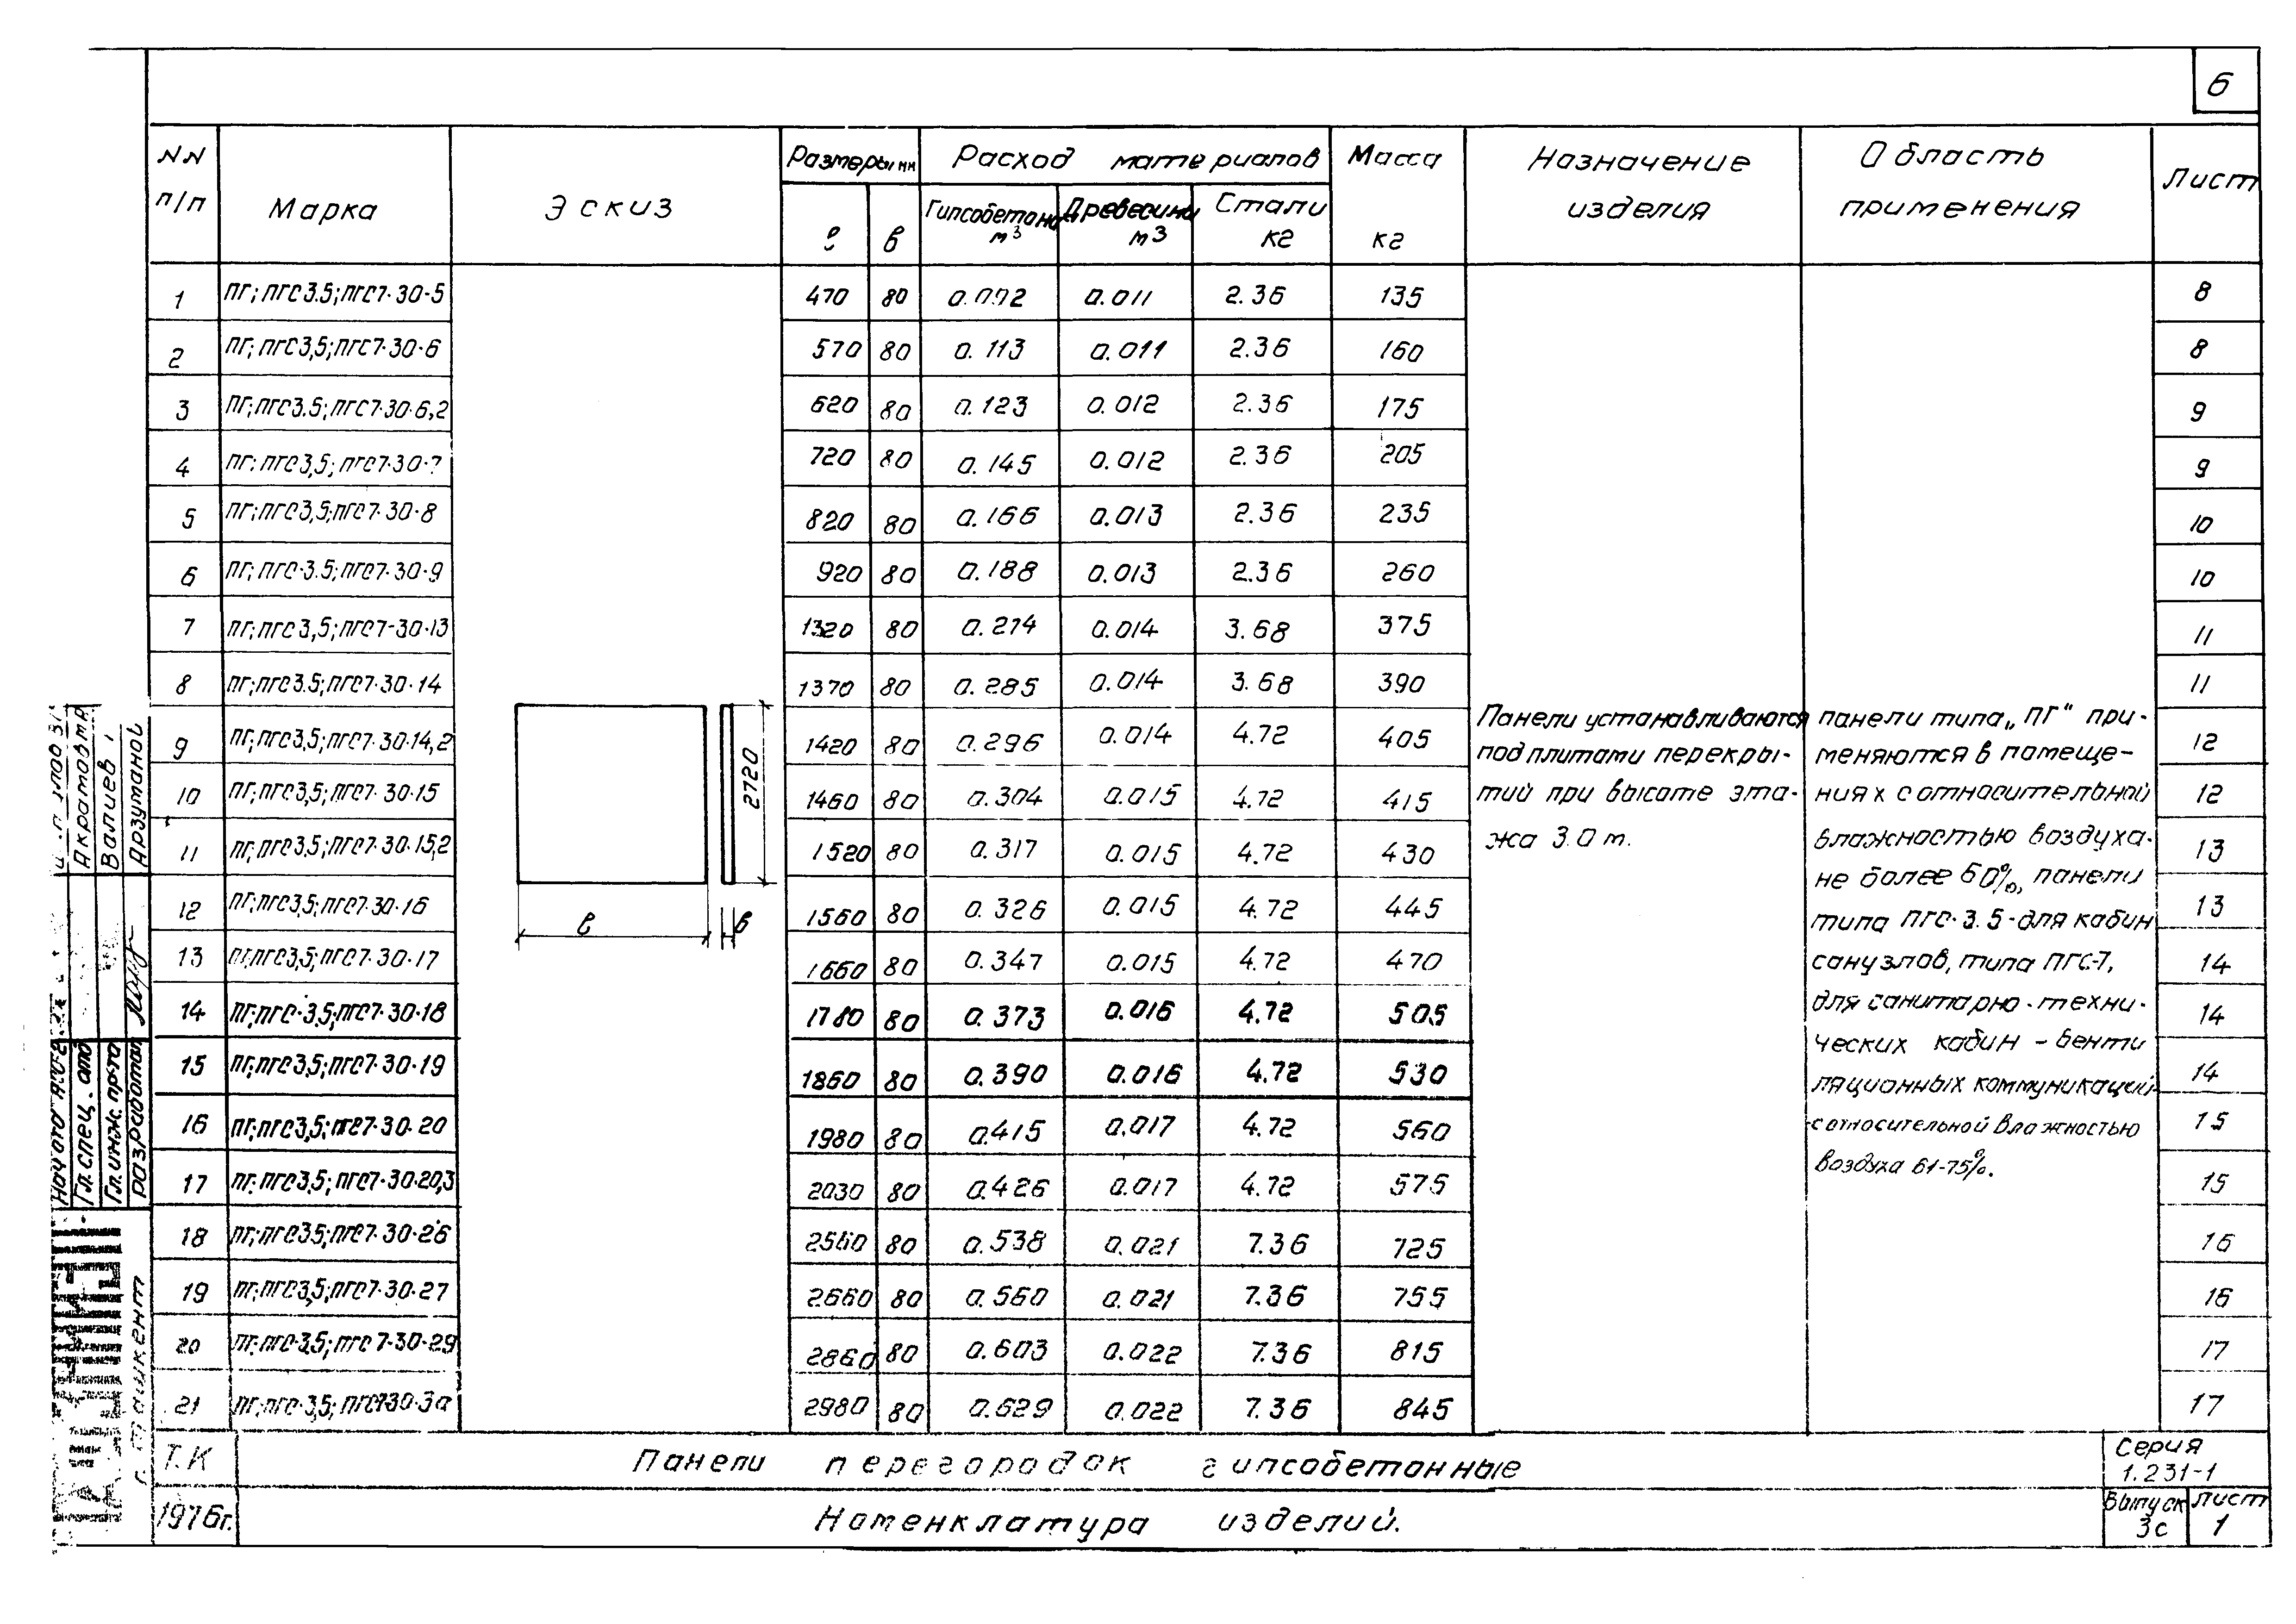 6
NN п/п
Марка
Эскиз
Размеры, мм
ℓ
в
Расход материалов
Гипсобетона м³
Древесины м³
Стали кг
Масса кг
Назначение изделия
Область применения
Лист
1 ПГ; пгс3.5; пгс7-30-5 470 80 0.092 0.011 2.36 135 8
2 ПГ; пгс3,5; пгс7-30-6 570 80 0.113 0.011 2.36 160 8
3 ПГ; пгс3.5; пгс7-30-6,2 620 80 0.123 0.012 2.36 175 9
4 пг; пгс3,5; пгс7-30-7 720 80 0.145 0.012 2.36 205 9
5 пг; пгс3,5; пгс7-30-8 820 80 0.166 0.013 2.36 235 10
6 пг; пгс-3.5; пгс7-30-9 920 80 0.188 0.013 2.36 260 10
7 пг; пгс3,5; пгс7-30-13 1320 80 0.274 0.014 3.68 375 11
8 пг; пгс3.5; пгс7-30-14 1370 80 0.285 0.014 3.68 390 11
9 пг; пгс3,5; пгс7-30-14,2 1420 80 0.296 0.014 4.72 405 12
10 пг; пгс3,5; пгс7-30-15 1460 80 0.304 0.015 4.72 415 12
11 пг; пгс3,5; пгс7-30-15,2 1520 80 0.317 0.015 4.72 430 13
12 пг; пгс3,5; пгс7-30-16 1560 80 0.326 0.015 4.72 445 13
13 пг; пгс3,5; пгс7-30-17 1660 80 0.347 0.015 4.72 470 14
14 пг; пгс-3,5; пгс7-30-18 1780 80 0.373 0.016 4.72 505 14
15 пг; пгс3,5; пгс7-30-19 1860 80 0.390 0.016 4.72 530 14
16 пг; пгс3,5; пгс7-30-20 1980 80 0.415 0.017 4.72 560 15
17 пг; пгс3,5; пгс7-30-20,3 2030 80 0.426 0.017 4.72 575 15
18 пг; пгс3,5; пгс7-30-26 2560 80 0.538 0.021 7.36 725 16
19 пг; пгс3,5; пгс7-30-27 2660 80 0.560 0.021 7.36 755 16
20 пг; пгс-3,5; пгс7-30-29 2860 80 0.603 0.022 7.36 815 17
21 пг; пгс-3,5; пгс7-30-30 2980 80 0.629 0.022 7.36 845 17
2720
ℓ
в
Панели устанавливаются
под плитами перекры-
тий при высоте эта-
жа 3.0 м.
панели типа „ПГ“ при-
меняются в помеще-
ниях с относительной
влажностью воздуха
не более 60%, панели
типа пгс-3.5-для кабин
санузлов, типа ПГС-7,
для санитарно-техни-
ческих кабин - венти
ляционных коммуникаций
с относительной влажностью
воздуха 61-75%.
Акрамовт А
Валиев
Арзуманов
Гл. спец. отд
Гл. инж. пр-та
разработал
г. Ташкент
Т.К
1976г.
Панели перегородок гипсобетонные
Номенклатура изделий.
Серия
1.231-1
Выпуск
3с
лист
1